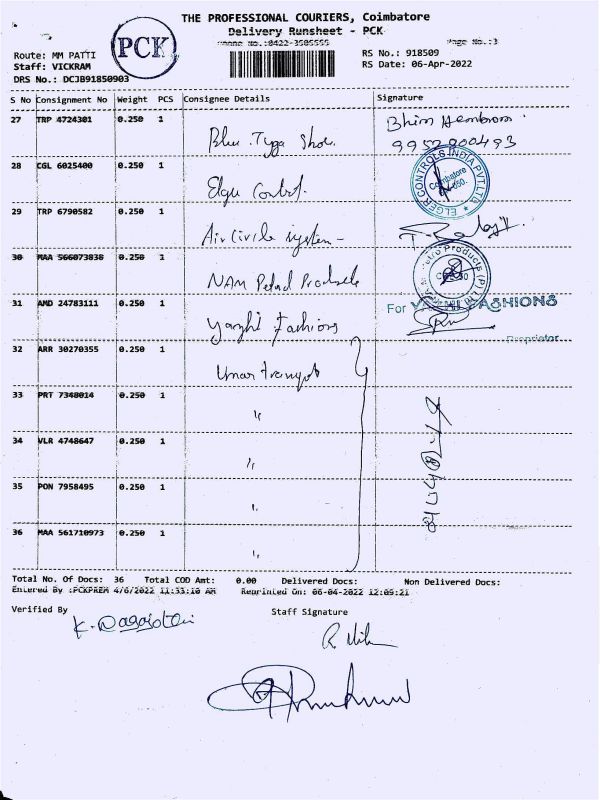 THE PROFESSIONAL COURIERS, Coimbatore
Delivery Runsheet - PCK
Phone No.:0422-3505555
Page No.:3
PCK
Route: MM PATTI
Staff: VICKRAM
DRS No.: DCJB91850903
RS No.: 918509
RS Date: 06-Apr-2022
S No Consignment No Weight PCS Consignee Details Signature
27 TRP 4724301 0.250 1 Blue Tyga Shoe. Bhim Hembrom
9952200493
28 CGL 6025400 0.250 1 Elgu Control. ELGER CONTROLS INDIA PVT.LTD. Coimbatore
29 TRP 6790582 0.250 1 Air Circle system
30 MAA 566073838 0.250 1 NAM Petrol Products Products (P) Ltd
31 AMD 24783111 0.250 1 Yazhi Fashions For FASHIONS
Proprietor
32 ARR 30270355 0.250 1 Umar transport
33 PRT 7348014 0.250 1 "
34 VLR 4748647 0.250 1 "
35 PON 7958495 0.250 1 "
36 MAA 561710973 0.250 1 "
Total No. Of Docs: 36 Total COD Amt: 0.00 Delivered Docs: Non Delivered Docs:
Entered By :PCKPREM 4/6/2022 11:33:10 AM Reprinted On: 06-04-2022 12:09:21
Verified By Staff Signature